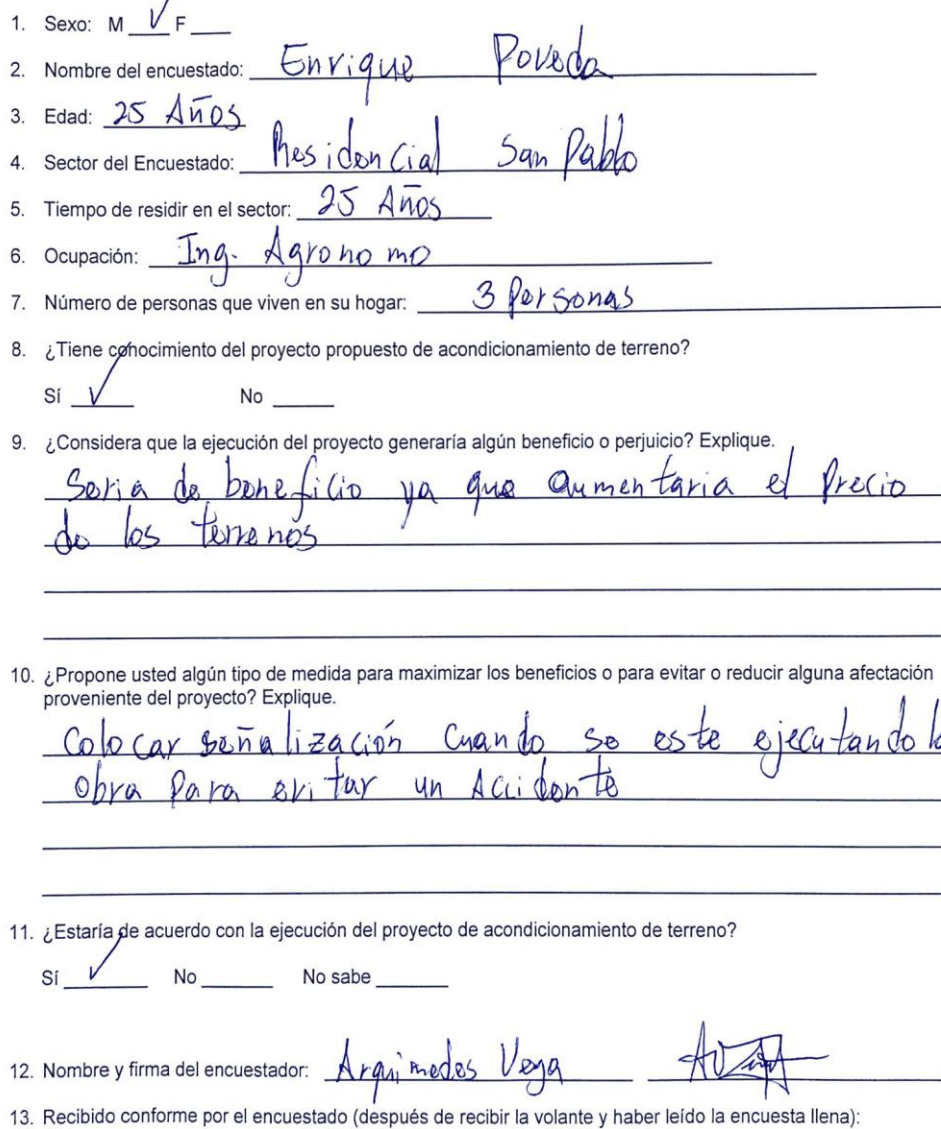 1. Sexo: M V F ____
2. Nombre del encuestado: Enrique Poveda
3. Edad: 25 Años
4. Sector del Encuestado: Residencial San Pablo
5. Tiempo de residir en el sector: 25 Años
6. Ocupación: Ing. Agronomo
7. Número de personas que viven en su hogar: 3 Personas
8. ¿Tiene conocimiento del proyecto propuesto de acondicionamiento de terreno?
Sí V No ____
9. ¿Considera que la ejecución del proyecto generaría algún beneficio o perjuicio? Explique.
Seria de beneficio ya que aumentaria el Precio
de los terrenos
10. ¿Propone usted algún tipo de medida para maximizar los beneficios o para evitar o reducir alguna afectación
proveniente del proyecto? Explique.
Colocar señalización cuando se este ejecutando la
obra Para evitar un Accidente
11. ¿Estaría de acuerdo con la ejecución del proyecto de acondicionamiento de terreno?
Sí V No ____ No sabe ____
12. Nombre y firma del encuestador: Arquimedes Vega
13. Recibido conforme por el encuestado (después de recibir la volante y haber leído la encuesta llena):